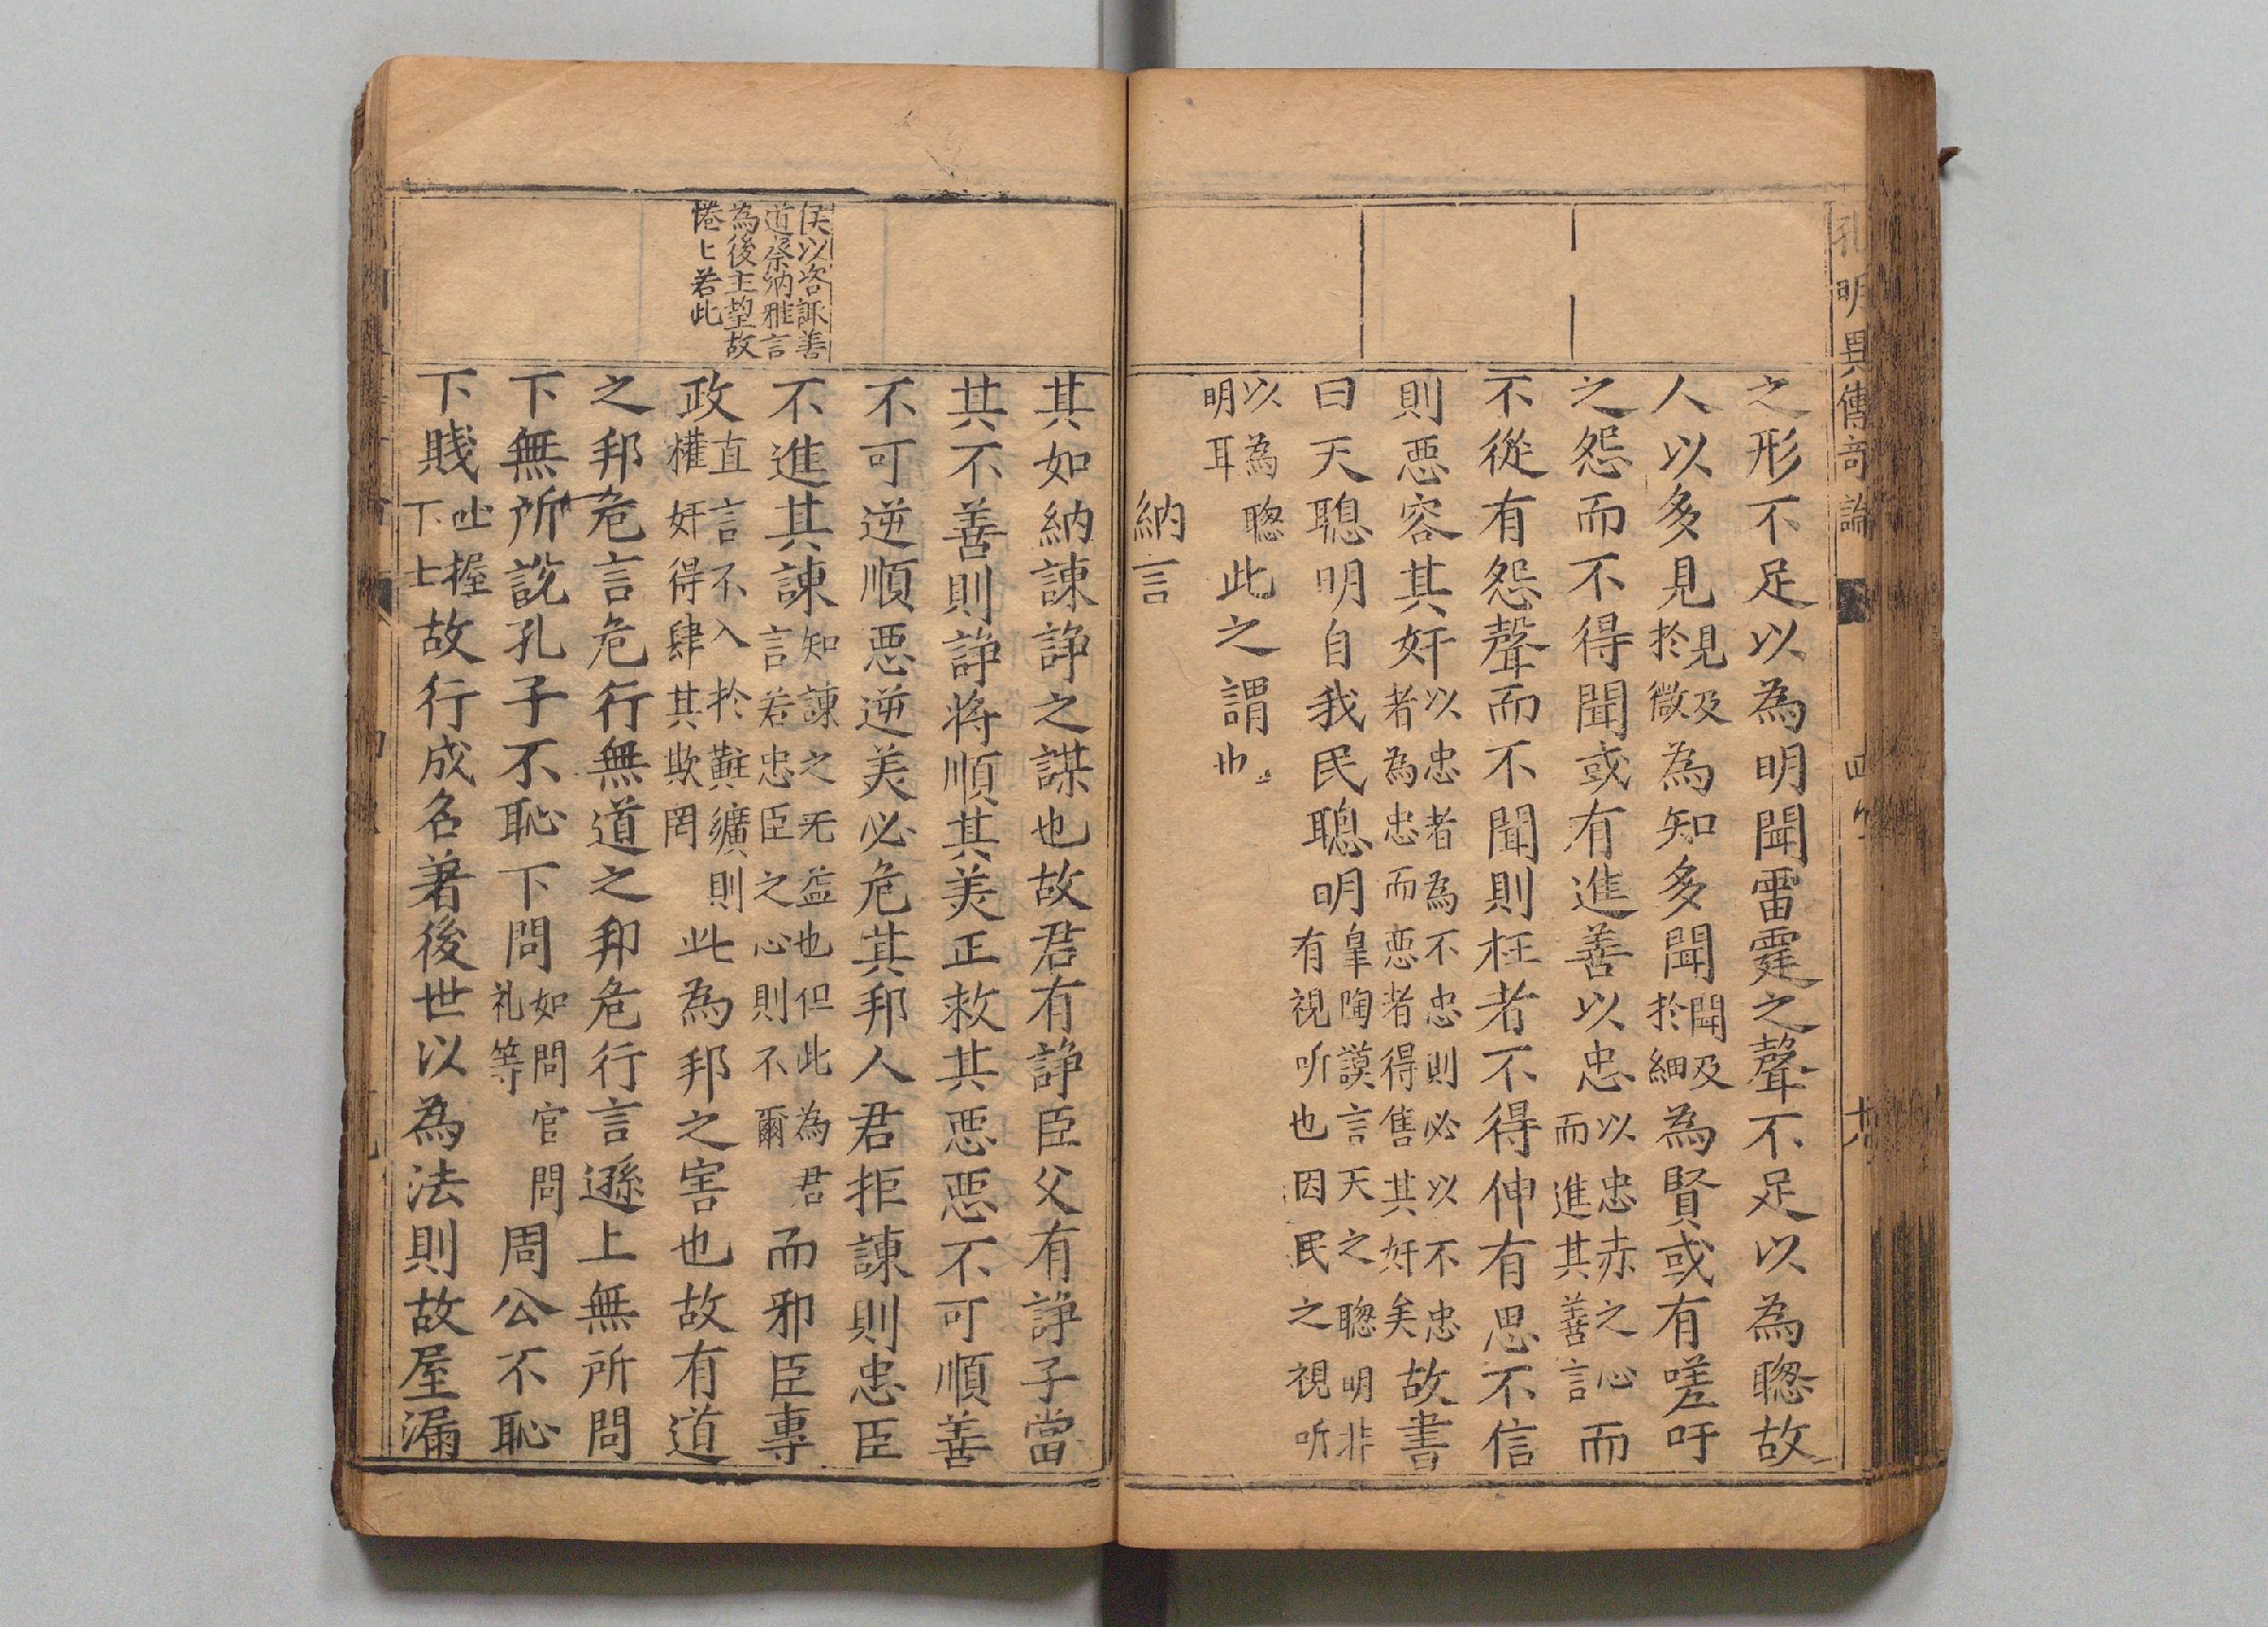 孔明異傳奇論
之形不足以為明聞雷霆之聲不足以為聰故
人以多見見及於微為知多聞聞及於細為賢或有嗟吁
之怨而不得聞或有進善以忠以忠赤之心而進其善言而
不從有怨聲而不聞則枉者不得伸有思不信
則惡容其奸以忠者為不忠則必以不忠者為忠而恶者得售其奸矣故書
曰天聰明自我民聰明皐陶謨言天之聰明非有視听也因民之視听
以為聰明耳此之謂也
納言
其如納諫諍之謀也故君有諍臣父有諍子當
其不善則諍將順其美正救其惡惡不可順善
不可逆順惡逆美必危其邦人君拒諫則忠臣
不進其諫知諫之无益也但此為君言若忠臣之心則不爾而邪臣專
政直言不入於黈纊則權奸得肆其欺罔此為邦之害也故有道
之邦危言危行無道之邦危行言遜上無所問
下無所說孔子不恥下問如問官問礼等周公不恥
下賤吐握下士故行成名著後世以為法則故屋漏
侯以咨諏善
道察納雅言
為後主望故
惓〻若此